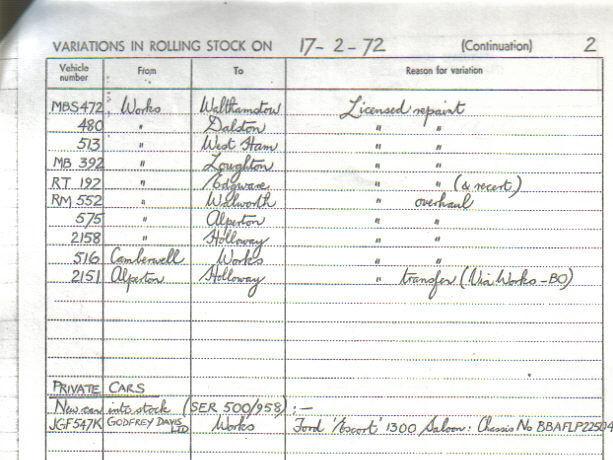 VARIATIONS IN ROLLING STOCK ON 17-2-72 (Continuation) 2
Vehicle number From To Reason for variation
MBS472 Works Walthamstow Licensed repaint
480 " Dalston " "
513 " West Ham " "
MB 392 " Loughton " "
RT 192 " Edgware " " (& recert)
RM 552 " Walworth " overhaul
575 " Alperton " "
2158 " Holloway " "
516 Camberwell Works " "
2151 Alperton Holloway " transfer (Via Works - BO)
PRIVATE CARS
New car into stock (SER 500/958) :—
JGF547K GODFREY DAVIS LTD Works Ford 'Escort' 1300 Saloon: Chassis No BBAFLP22504